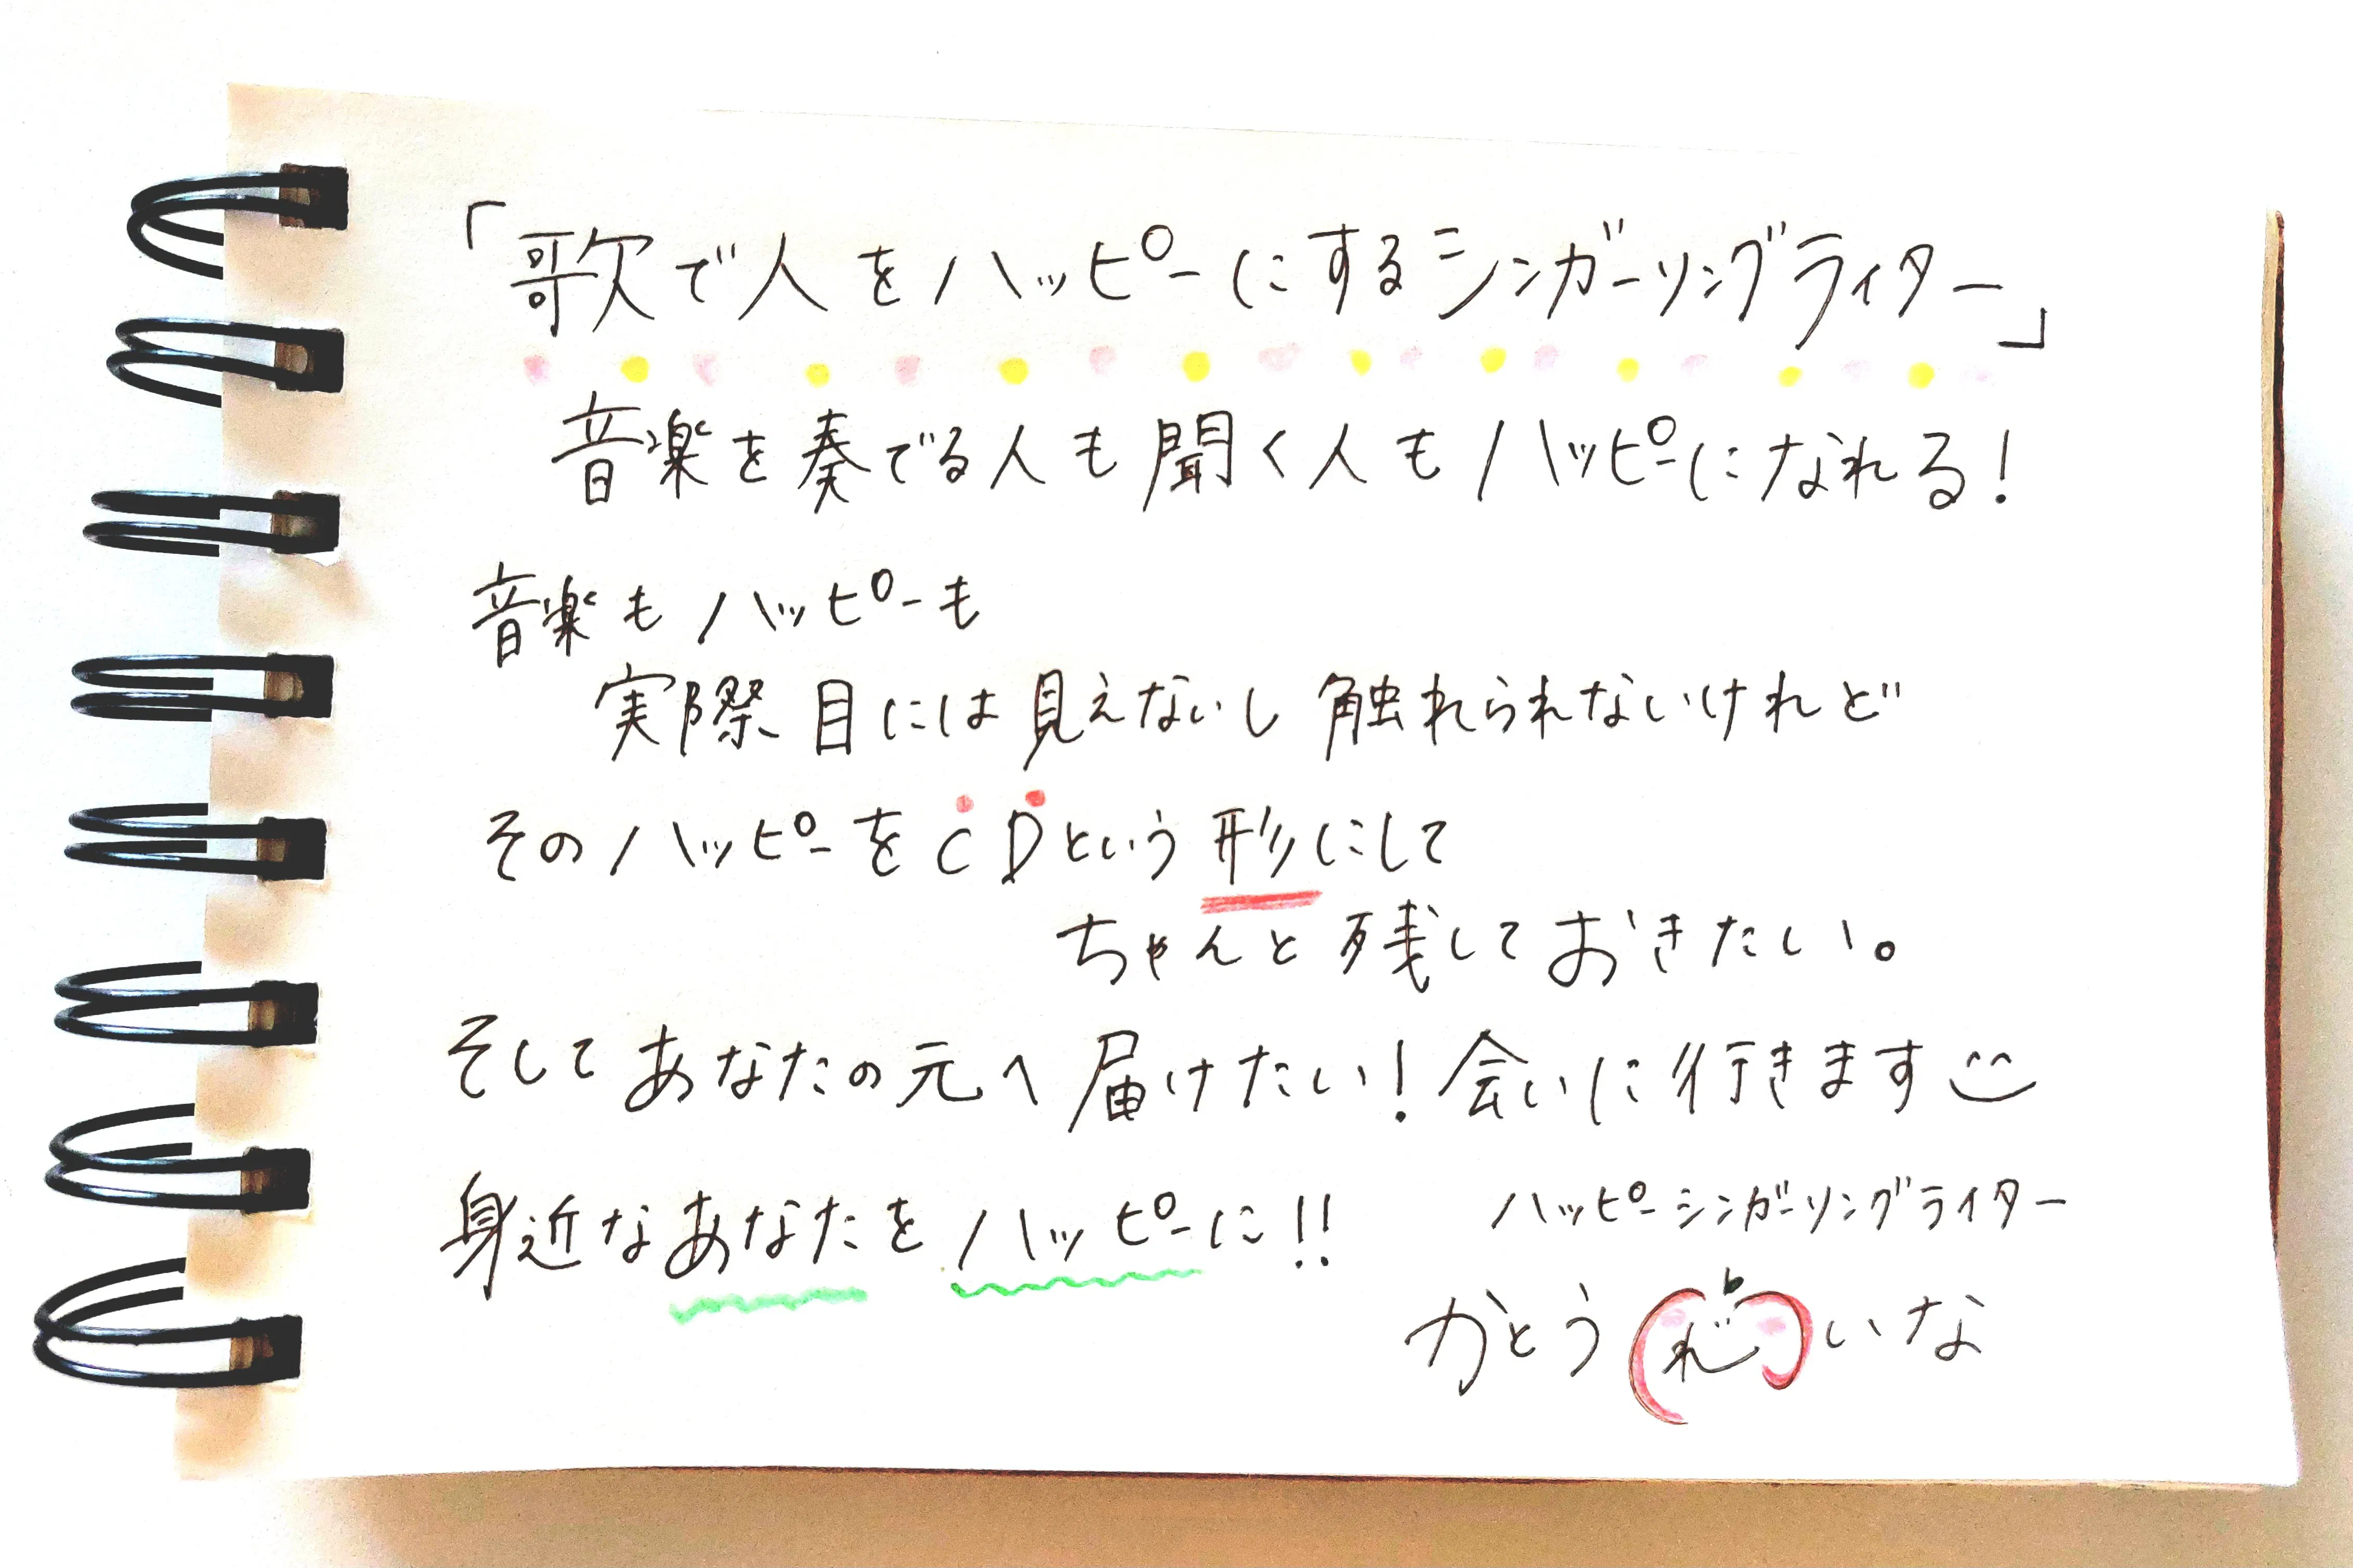 「歌で人をハッピーにするシンガーソングライター」
音楽を奏でる人も聞く人もハッピーになれる!
音楽もハッピーも
実際目には見えないし触れられないけれど
そのハッピーをCDという形にして
ちゃんと残しておきたい。
そしてあなたの元へ届けたい!会いに行きます
身近なあなたをハッピーに!!
ハッピーシンガーソングライター
かとうれいな